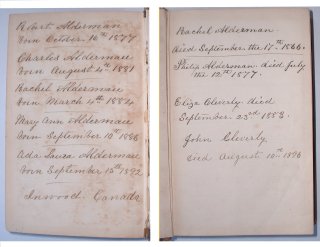 Robert Alderman
Born October 16th 1877
Charles Alderman
Born August 4th 1881
Rachel Alderman
Born March 4th 1884
Mary Ann Alderman
Born September 10th 1886
Ada Laura Alderman
Born September 15th 1892
Inwood. Canada
Rachel Alderman
Died September the 17th 1866.
Philip Alderman died July
the 12th 1877.
Eliza Cleverly died
September. 23rd 1888.
John Cleverly
Died August 10th 1896